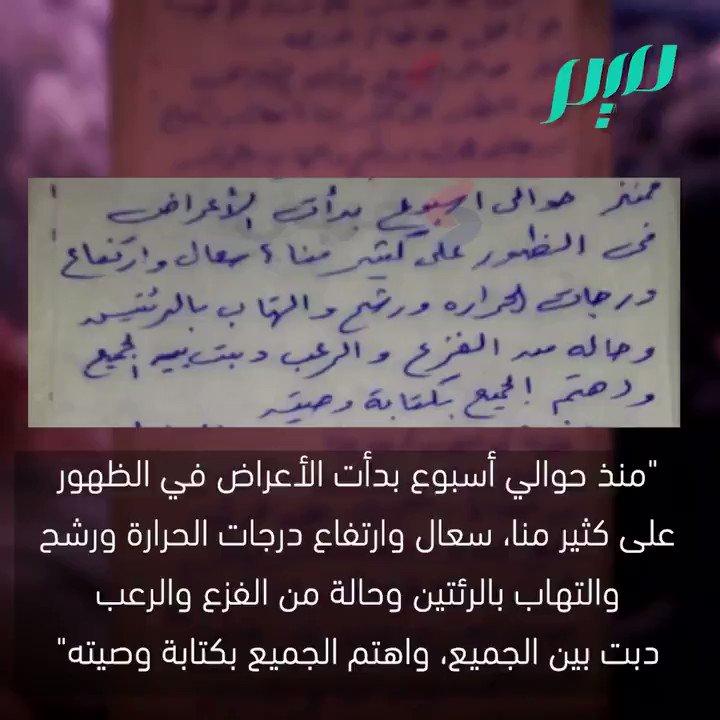 سير
فمنذ حوالى اسبوع بدأت الأعراض
فى الظهور على كثير منا، سعال وارتفاع
درجات الحراره ورشح والتهاب بالرئتين
وحاله من الفزع والرعب دبت بين الجميع
واهتم الجميع بكتابة وصيته
"منذ حوالي أسبوع بدأت الأعراض في الظهور
على كثير منا، سعال وارتفاع درجات الحرارة ورشح
والتهاب بالرئتين وحالة من الفزع والرعب
دبت بين الجميع، واهتم الجميع بكتابة وصيته"